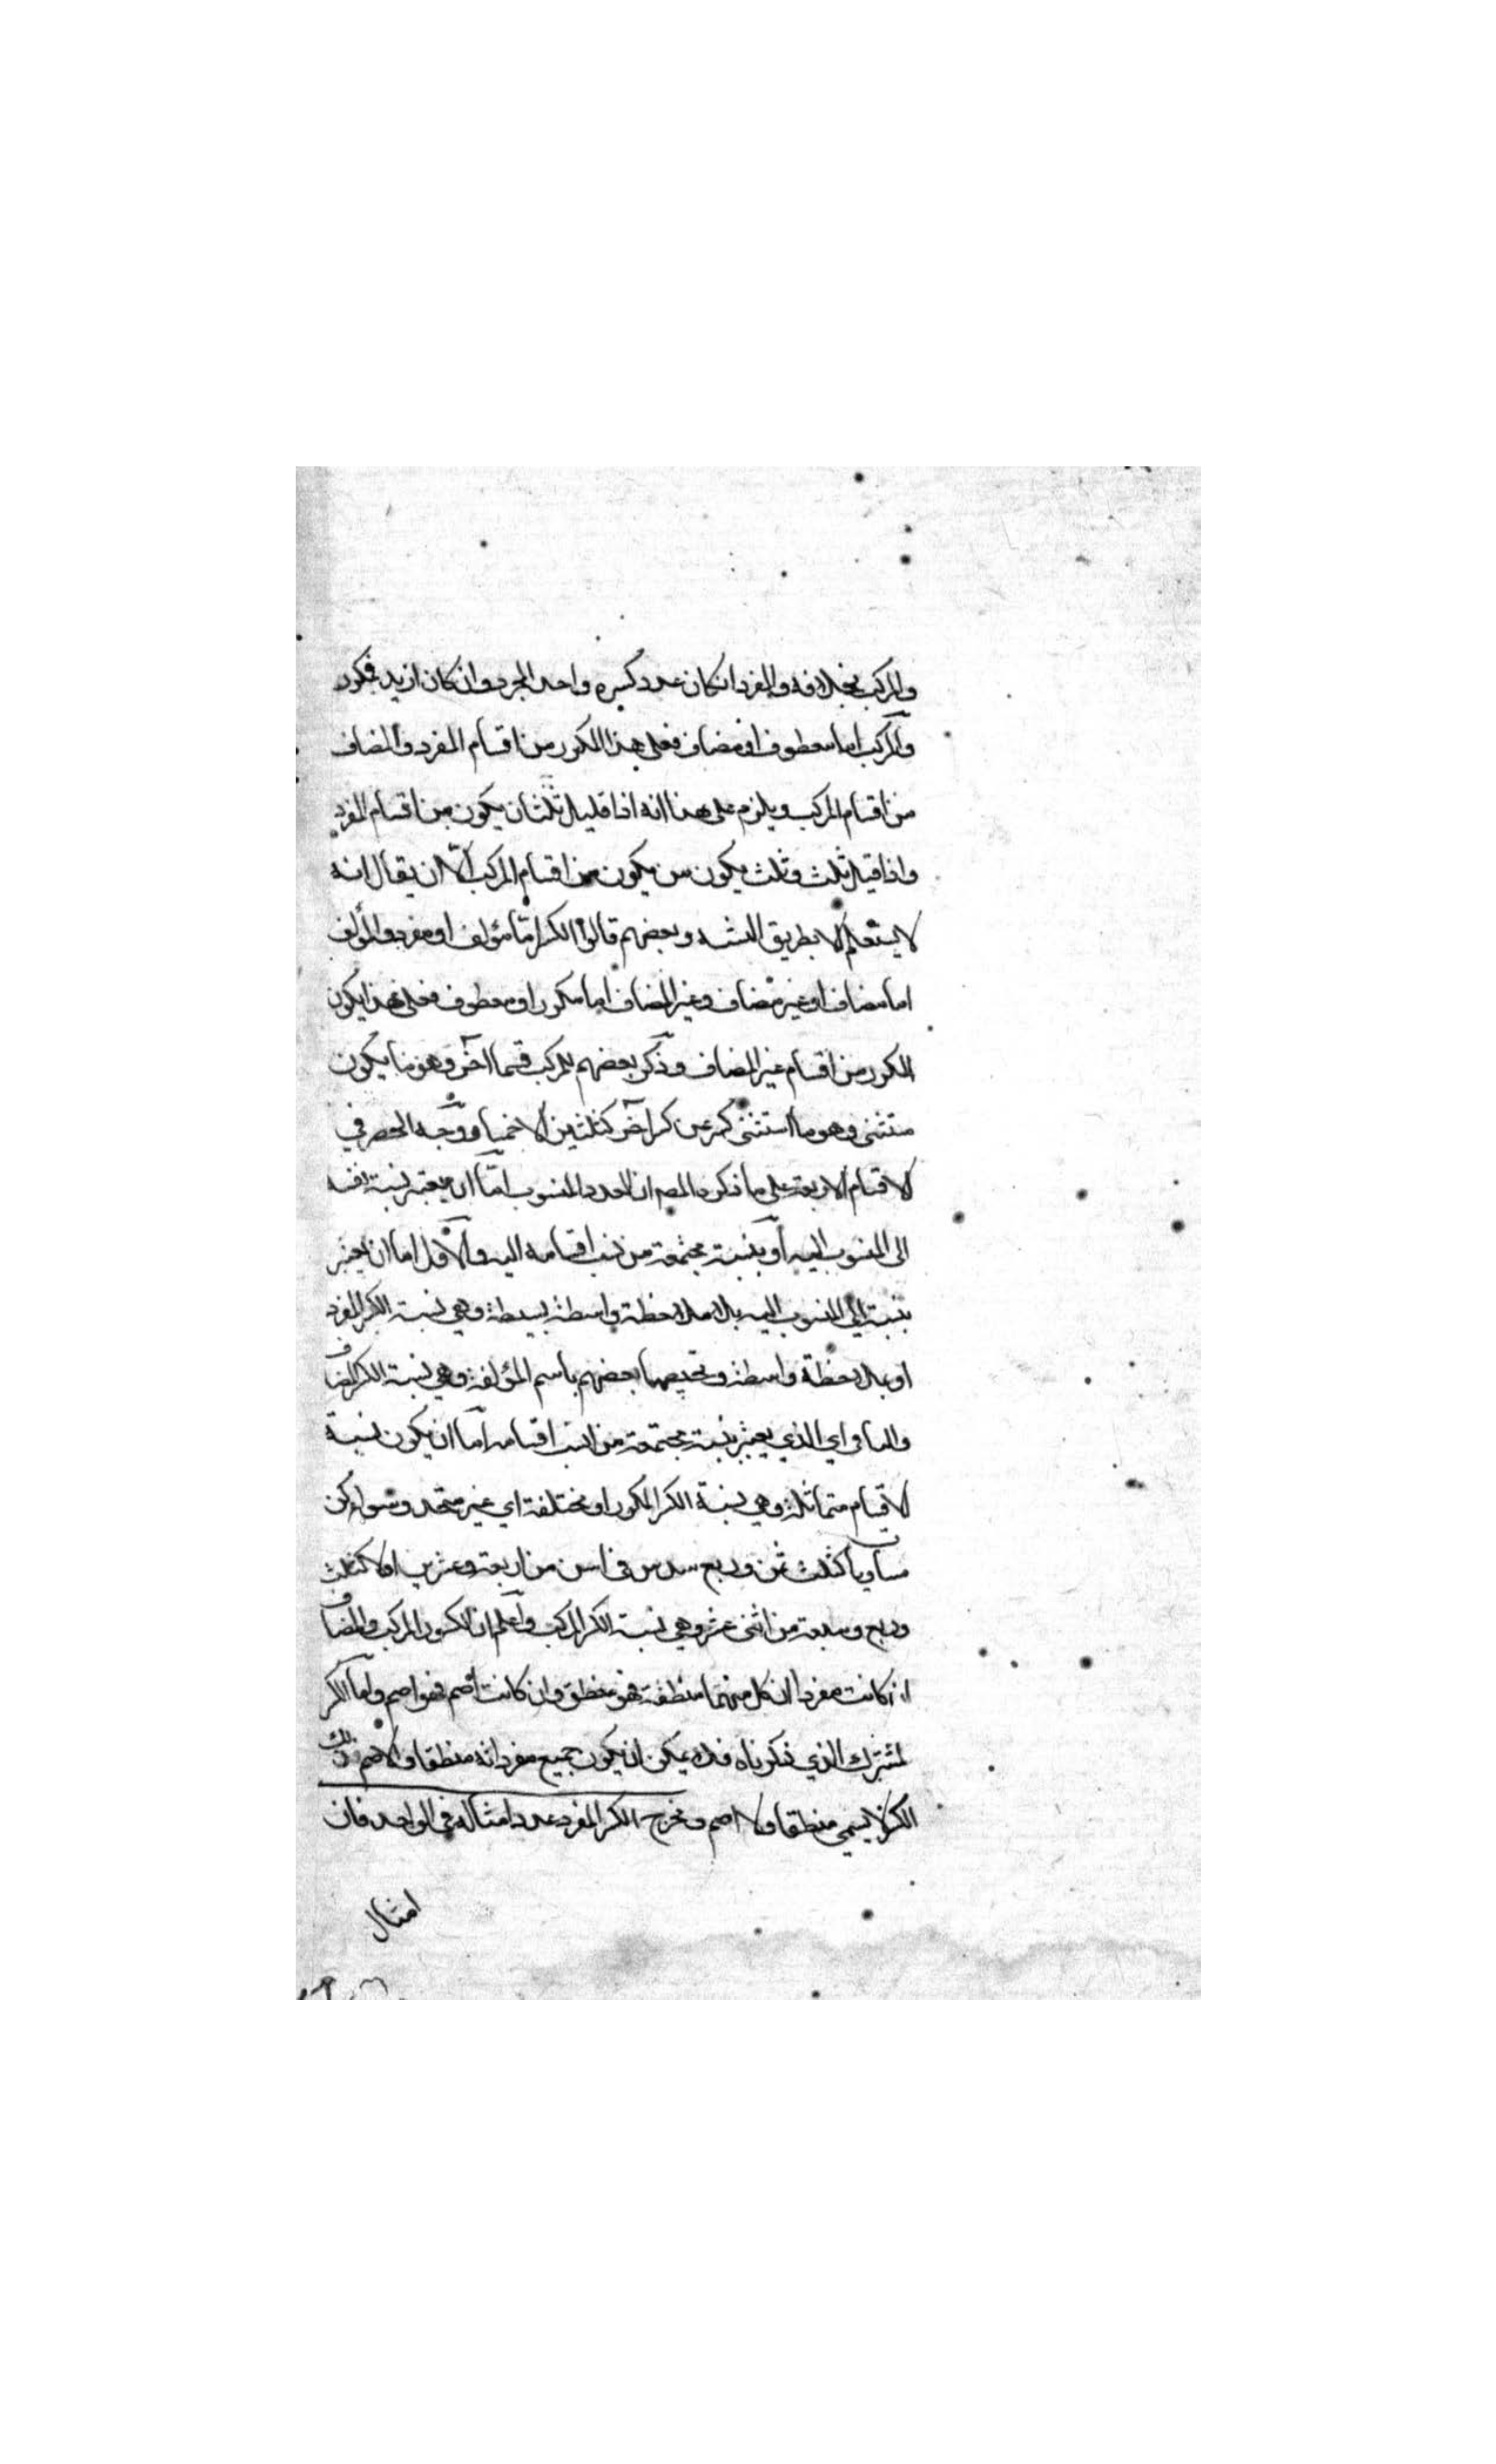 والمركب بخلافه والمفرد ان كان عدد كسره واحد المجرد وان كان ازيد فمكرر
والمركب اما معطوف او مضاف فعلى هذا المكرر من اقسام المفرد والمضاف
من اقسام المركب ويلزم على هذا انه اذا قيل ثلثان يكون من اقسام المفرد
واذا قيل ثلث وثلث يكون من يكون من اقسام المركب الا ان يقال انه
لا يستعلم الا بطريق وبعضهم قالوا الكسر اما مؤلف او مفرد والمؤلف
اما مضاف او غير مضاف وغير المضاف اما مكرر او معطوف فعلى هذا يكون
المكرر من اقسام غير المضاف وذكر بعضهم للمركب قسما آخر وهو ما يكون
مستثنى وهو ما استثنى كسر عن كسر آخر كثلثين الا خمسا ووجه الحصر في
الاقسام الاربعة على ما ذكره المص ان العدد المنسوب اما ان يعتبر نسبة نفسه
الى المنسوب اليه او بنسبة مجتمعة من نسب اقسامه اليه والاول اما ان يعتبر
بنسبة الى المنسوب اليه بلا ملاحظة واسطة بسيطة وهي نسبة الكسر المفرد
او بملاحظة واسطة بعضهم باسم المؤلفة وهي نسبة الكسر المضاف
والثاني اي الذي يعتبر بنسبة مجتمعة من نسب اقسامه اما ان يكون نسبة
الاقسام متماثلة وهي نسبة الكسر المكرر او مختلفة اي غير متحد وسواء كن
مساويا كثلث ثمن وربع سدس من اربعة وعشرين اولا كثلث
وربع وسبعة من اثنى عشر وهي نسبة الكسر المركب واعلم ان الكسور المركب والمضاف
ان كانت مفردا ان كل منهما منطقة فهو منطق وان كانت اصم فهو اصم واما الكسر
المشترك الذي ذكرناه فلا يمكن ان يكون جميع مفرداته منطقا والاصم ذلك
الكسر لا يسمى منطقا ولا اصم ومخرج الكسر المفرد عدد امثاله في الواحد فان
امثال